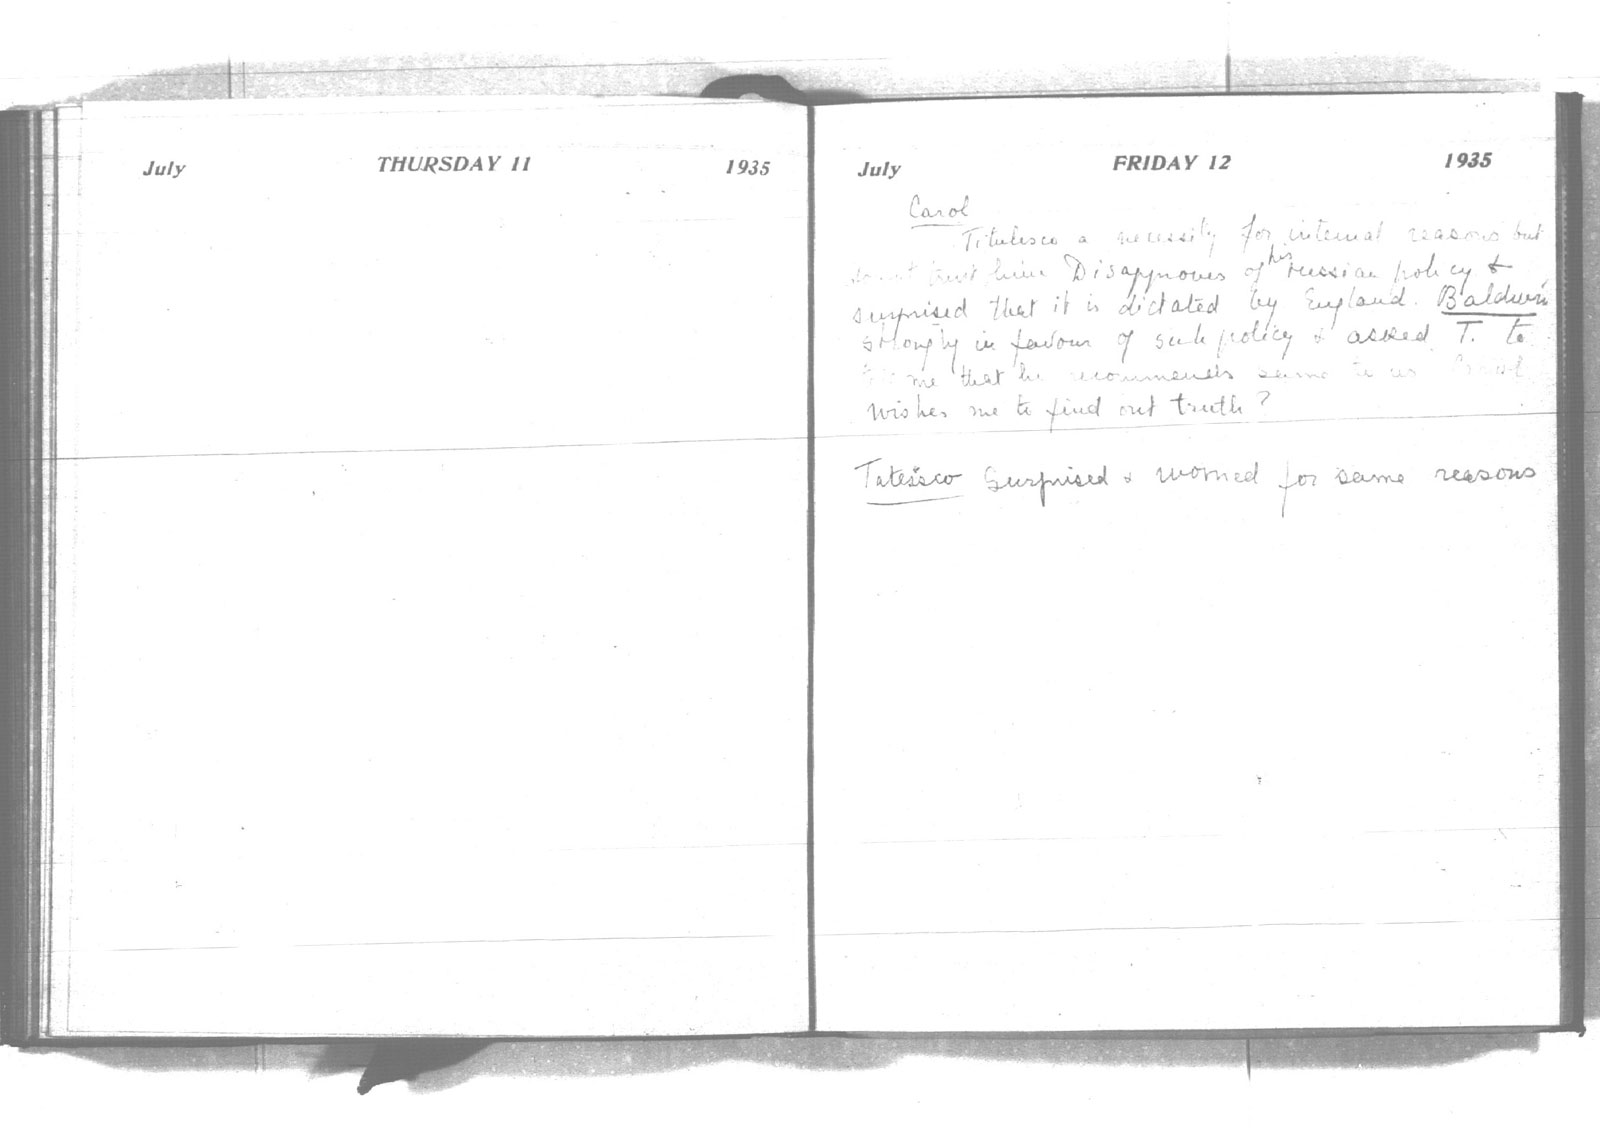 July THURSDAY 11 1935
July FRIDAY 12 1935
Carol
Titulesco a necessity for internal reasons but
trust him Disapproves of his russian policy &
surprised that it is dictated by England. Baldwin
strongly in favour of such policy & asked T. to
me that he recommends same to us Carol
wishes me to find out truth?
Tatessco Surprised & worried for same reasons